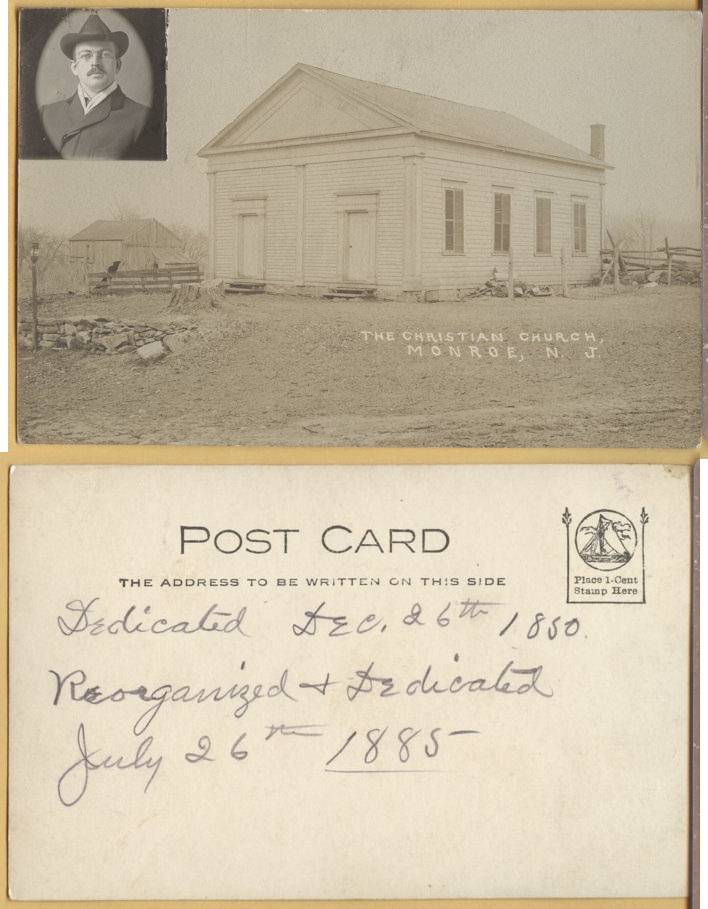 THE CHRISTIAN CHURCH,
MONROE, N. J.
POST CARD
THE ADDRESS TO BE WRITTEN ON THIS SIDE
Place 1-Cent
Stamp Here
Dedicated Dec. 26th 1850.
Reorganized + Dedicated
July 26th 1885